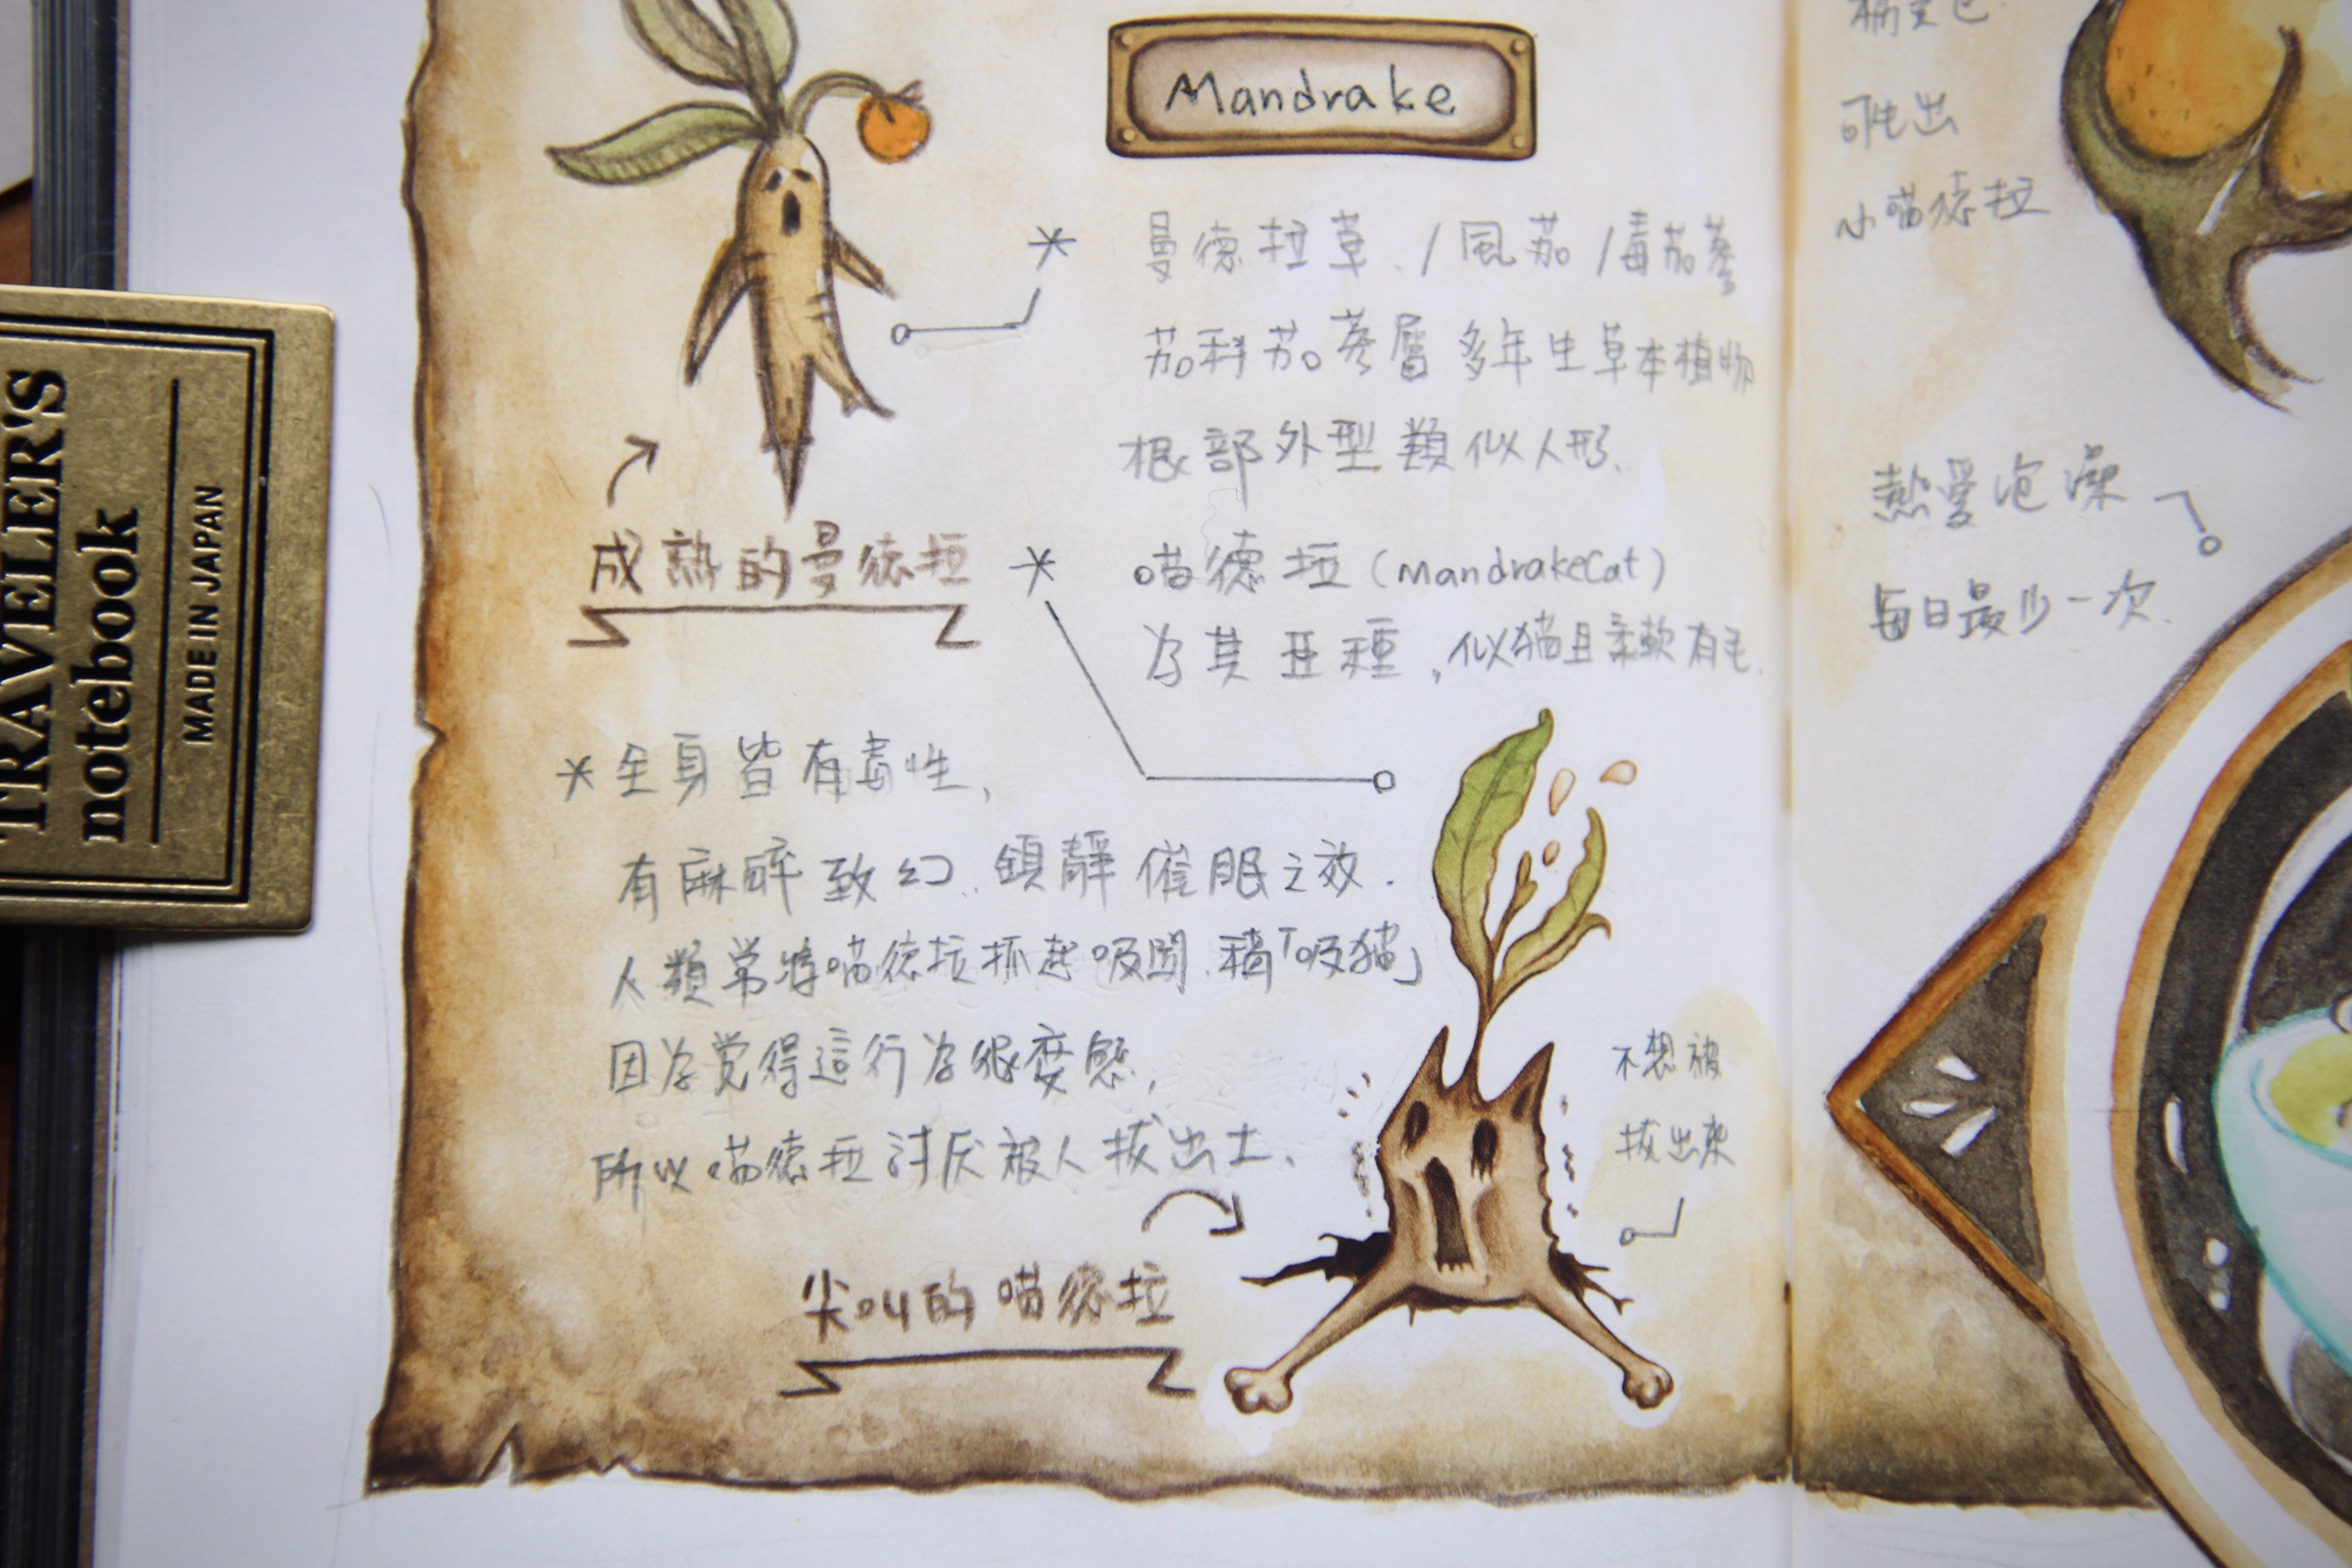 TRAVELER'S
notebook
MADE IN JAPAN
Mandrake
曼德拉草./風茄/毒茄蔘
茄科茄蔘屬多年生草本植物
根部外型類似人形.
成熟的曼德拉
喵德拉(MandrakeCat)
为其亞種,似猫且柔軟有毛.
*全身皆有毒性,
有麻醉致幻、鎮靜催眠之效.
人類常將喵德拉抓起吸聞.稱「吸猫」
因为覚得這行为很変態,
所以喵德拉討厌被人拔出土、
尖叫的喵德拉
不想被
拔出來
可生出
小喵德拉
熱愛泡澡
每日最少一次.